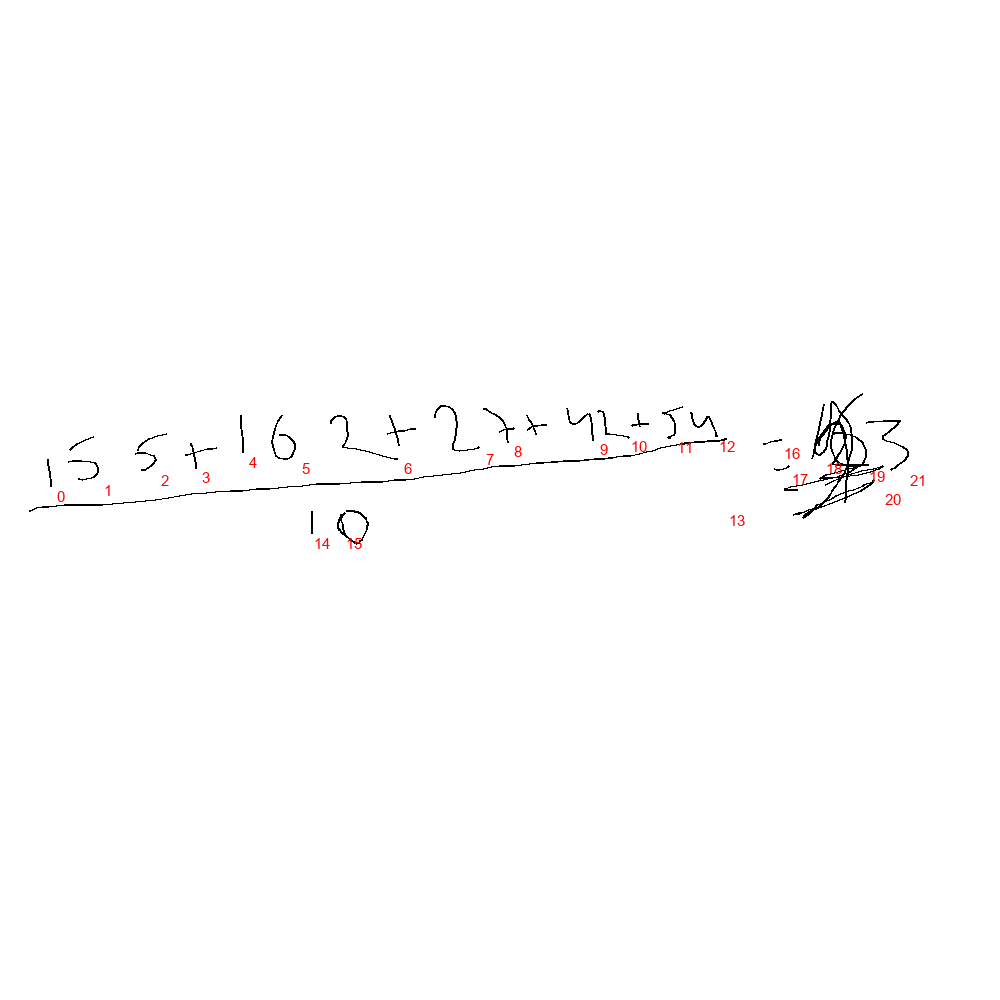 155+162+27+42+54 = 3
10
0 1 2 3 4 5 6 7 8 9 10 11 12 13 14 15 16 17 18 19 20 21